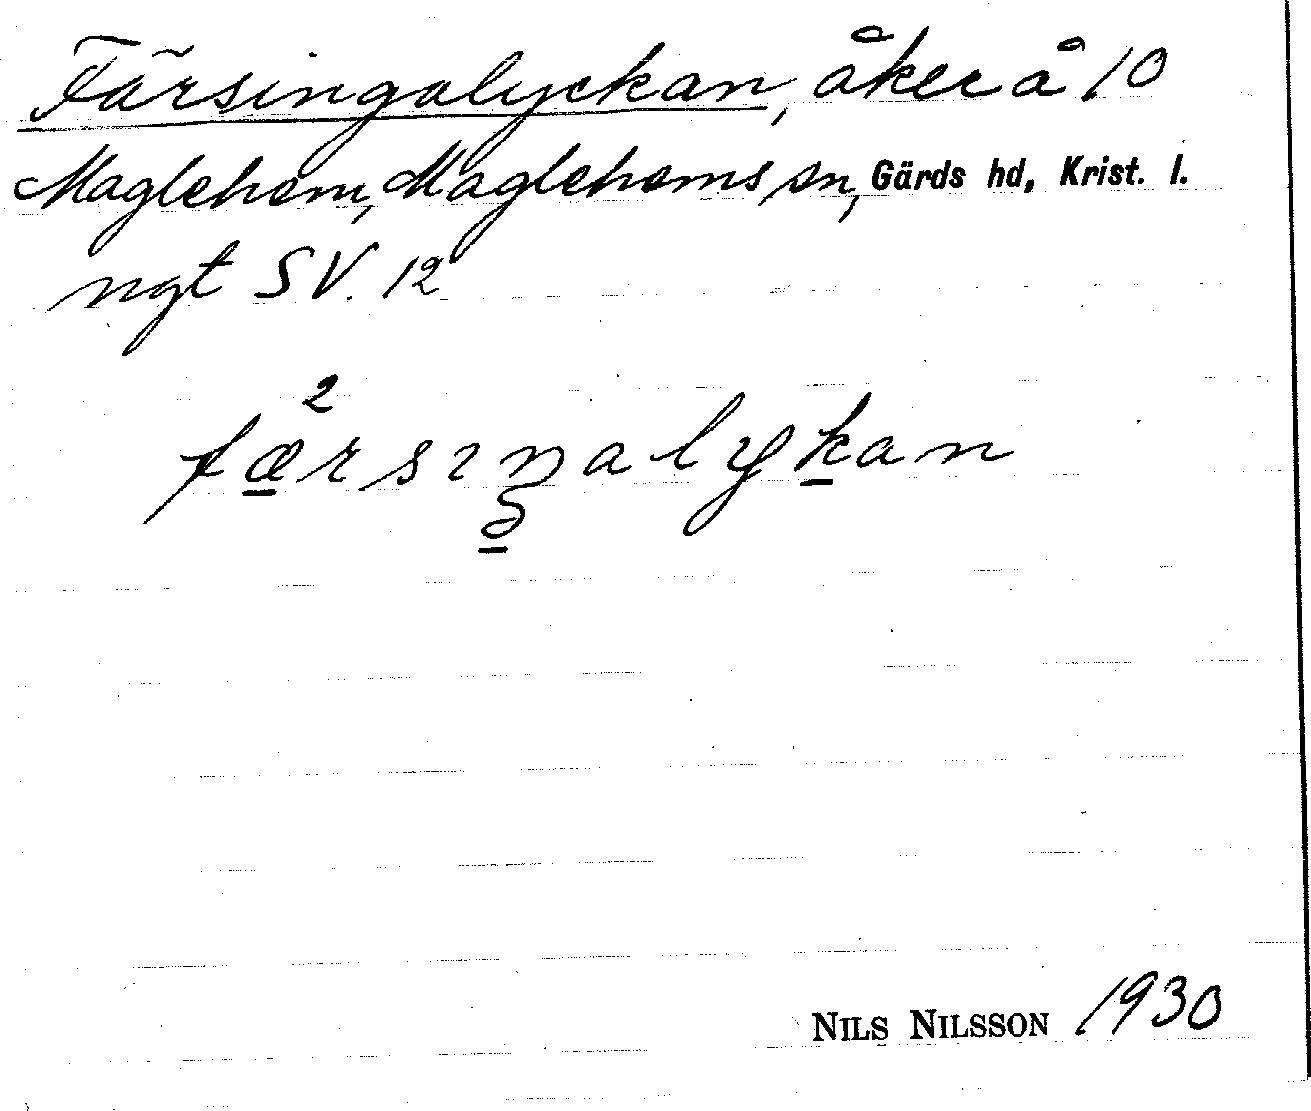 Färsingalyckan, åker å 10
Maglehem, Maglehems sn, Gärds hd, Krist. l.
ngt SV. 12
2
færsıŋalykan
ə
NILS NILSSON 1930